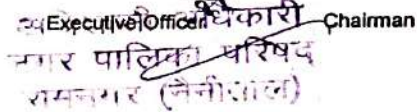 Executive Officer अधिकारी Chairman
नगर पालिका परिषद
रामनगर (नैनीताल)